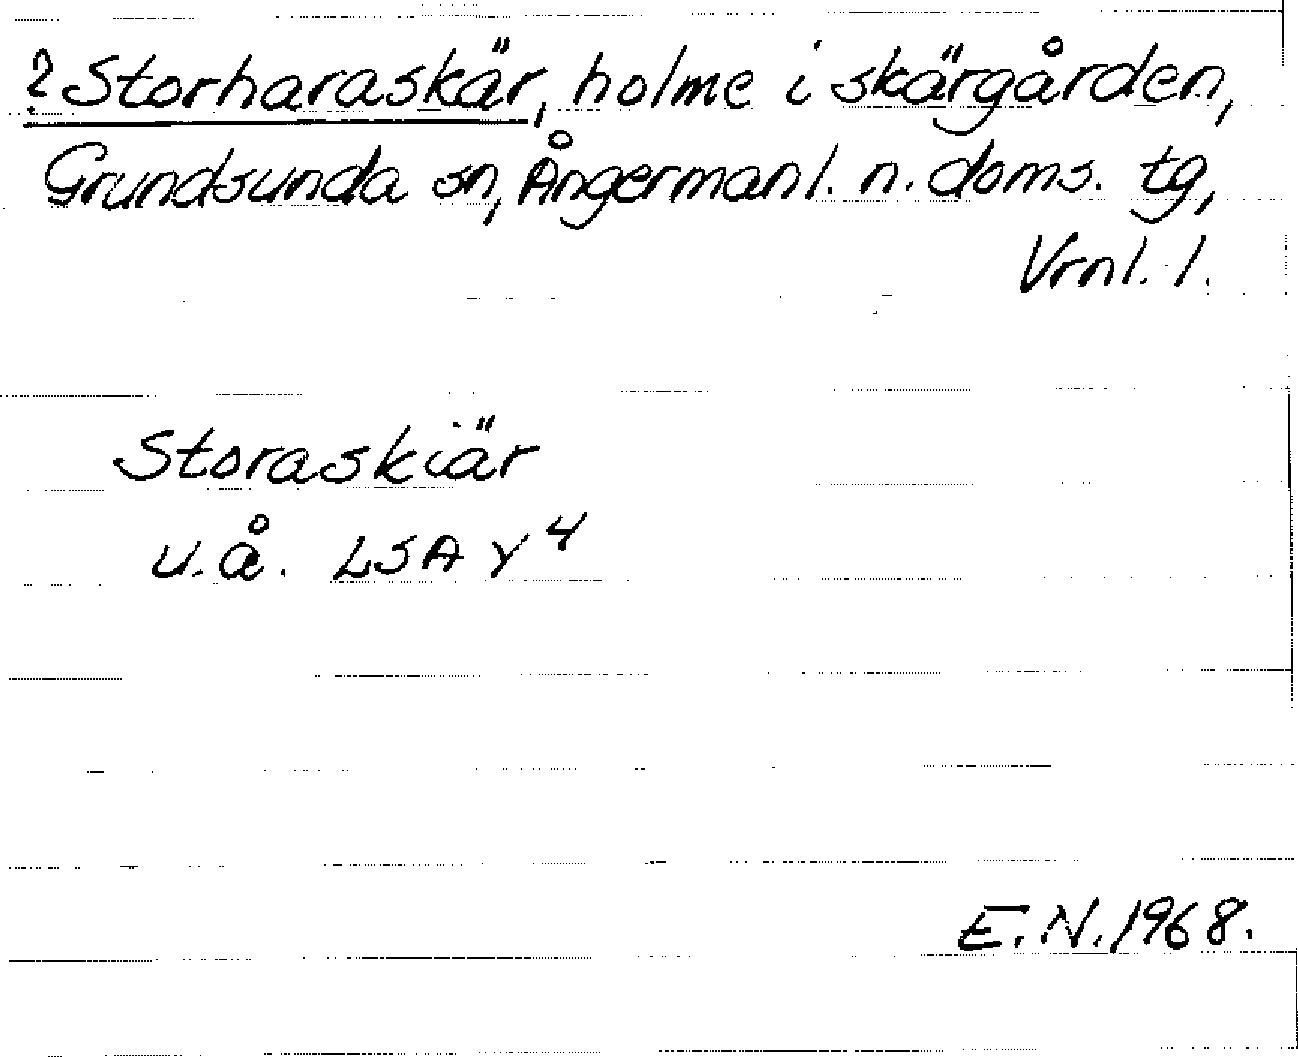 ? Storharaskär, holme i skärgården,
Grundsunda sn, Ångermanl. n. doms. tg,
Vrnl. l.
Storaskiär
u.å. LSA Y 4
E.N. 1968.